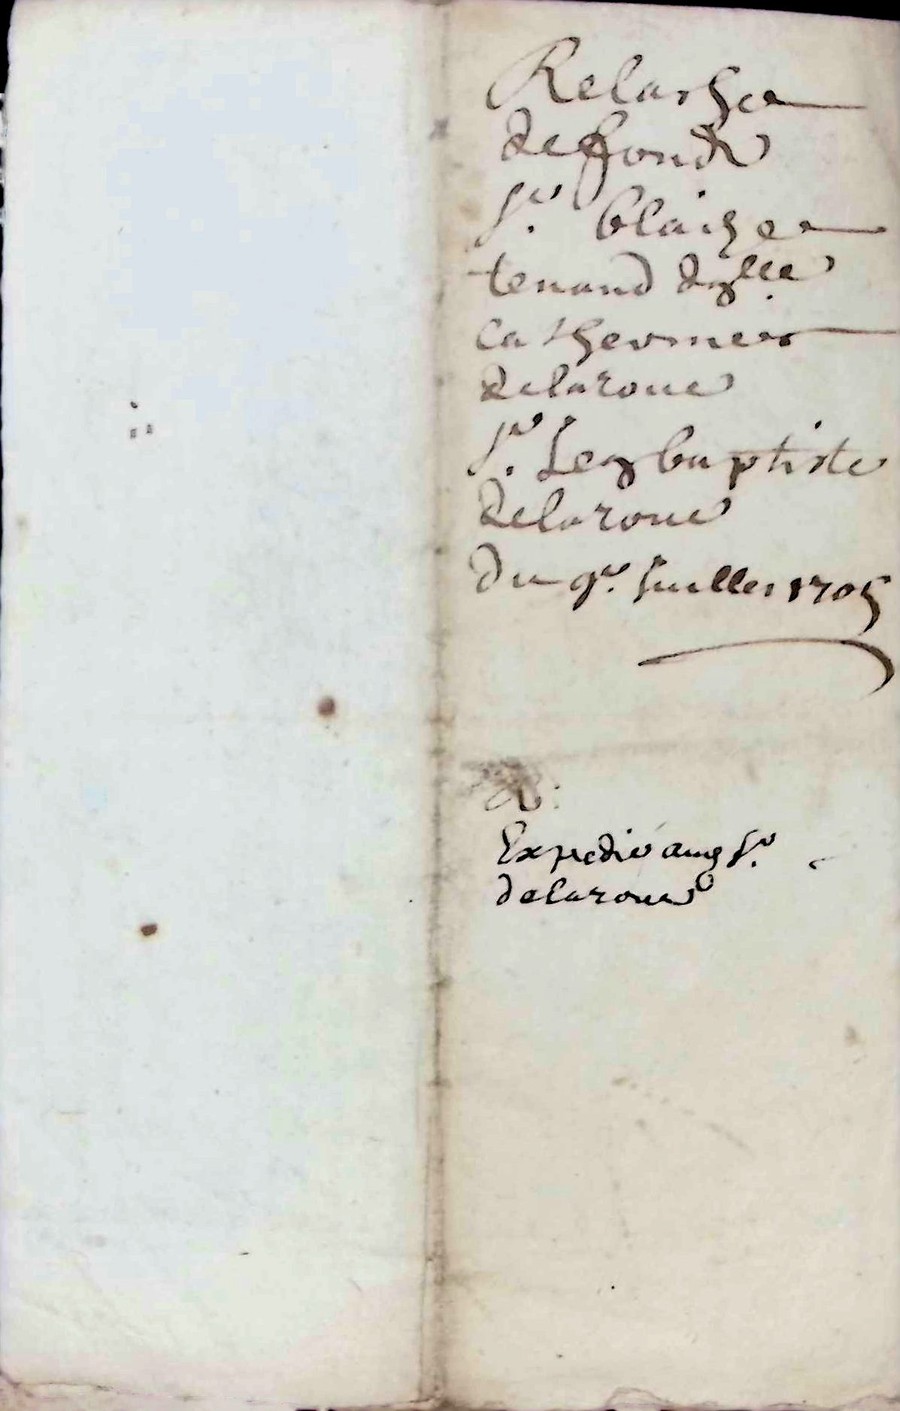 Relasche
de fondz
Sr. blaize
tenand dlle
Catherine
delaroue
Sr. Jean baptiste
delaroue
du 9e. Juillet 1705
Expedié aud Sr.
delaroue